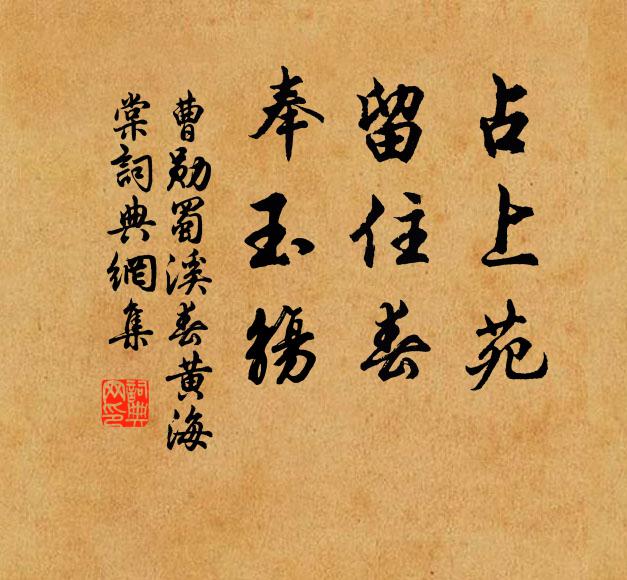 占上苑
留住春
奉玉觞
曹勋蜀溪春黄海
棠詞典網集
詞典网印